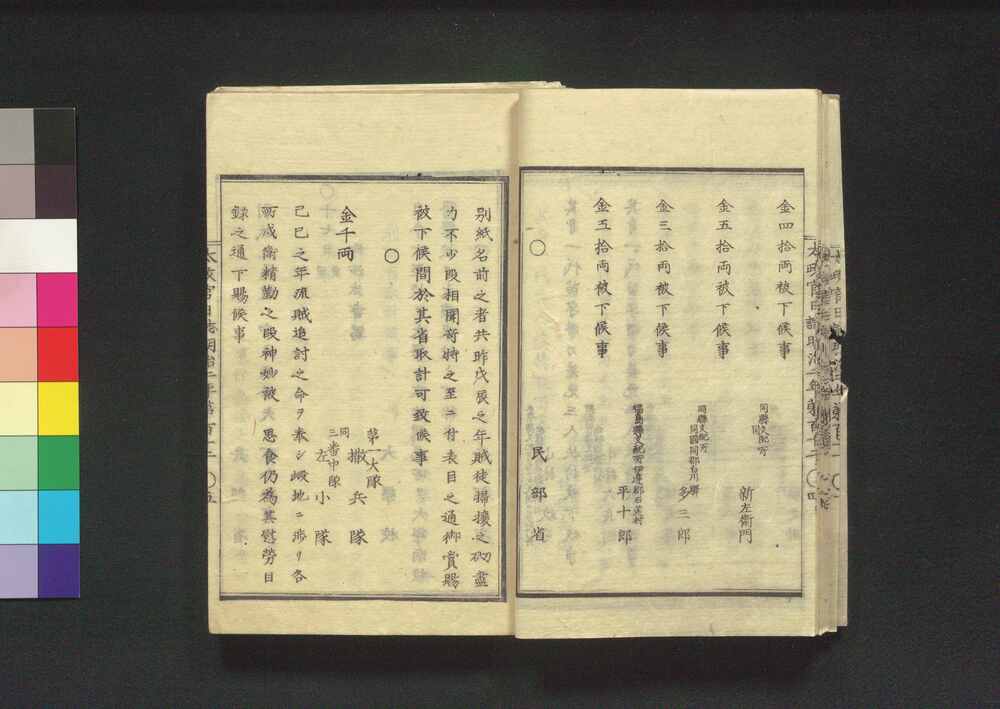 金四拾両被下候事
同縣支配所
同
新左衛門
金五拾両被下候事
同縣支配所
同國同郡
多三郎
金三拾両被下候事
福島縣支配所伊達郡
平十郎
金五拾両被下候事
○
民部省
別紙名前之者共昨戊辰之年賊徒掃攘之砌盡
力不少段相聞奇特之至ニ付表目之通御賞賜
被下候間於其省取計可致候事
○
第一大隊
撒兵隊
同
三番中隊
左小隊
金千両
己巳之年流賊追討之命ヲ奉シ
地ニ渉リ各
所戍衛精勤之段神妙
思食仍為其慰勞目
録之通下賜候事
太政官日誌明治二年第百十二
○五